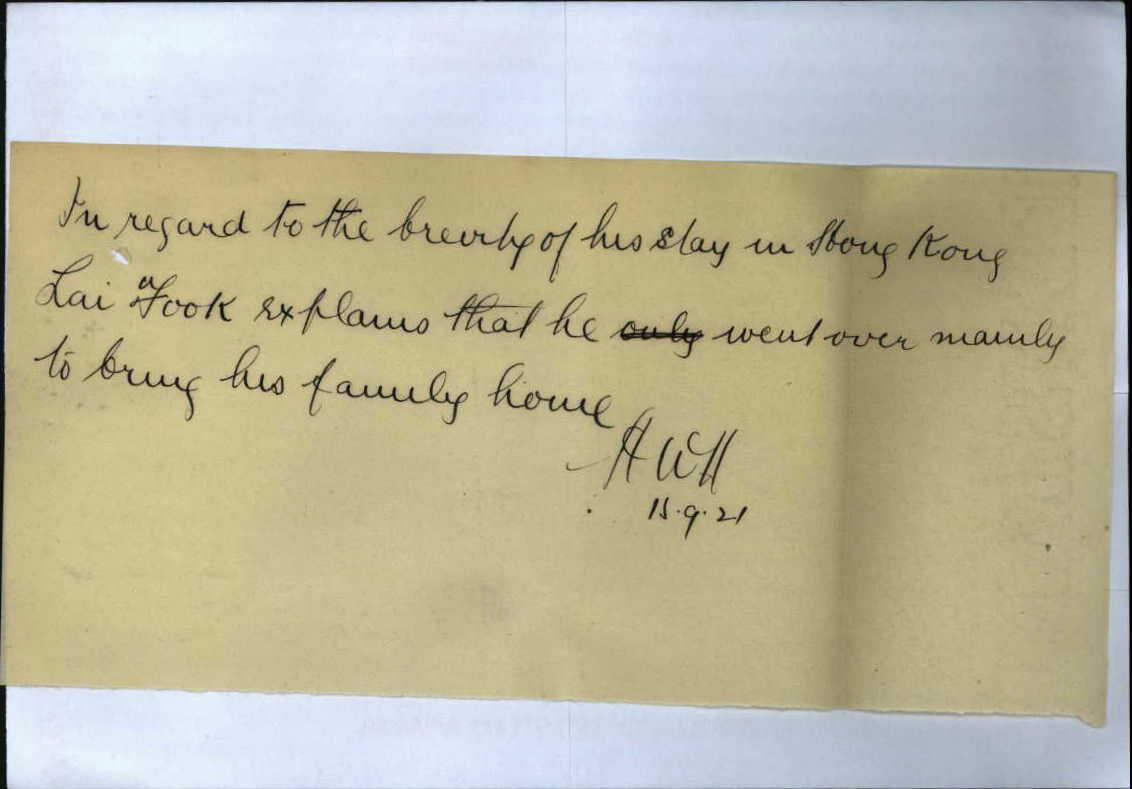 In regard to the brevity of his stay in Hong Kong
Lai Fook explains that he only went over mainly
to bring his family home
AWH
15.9.21